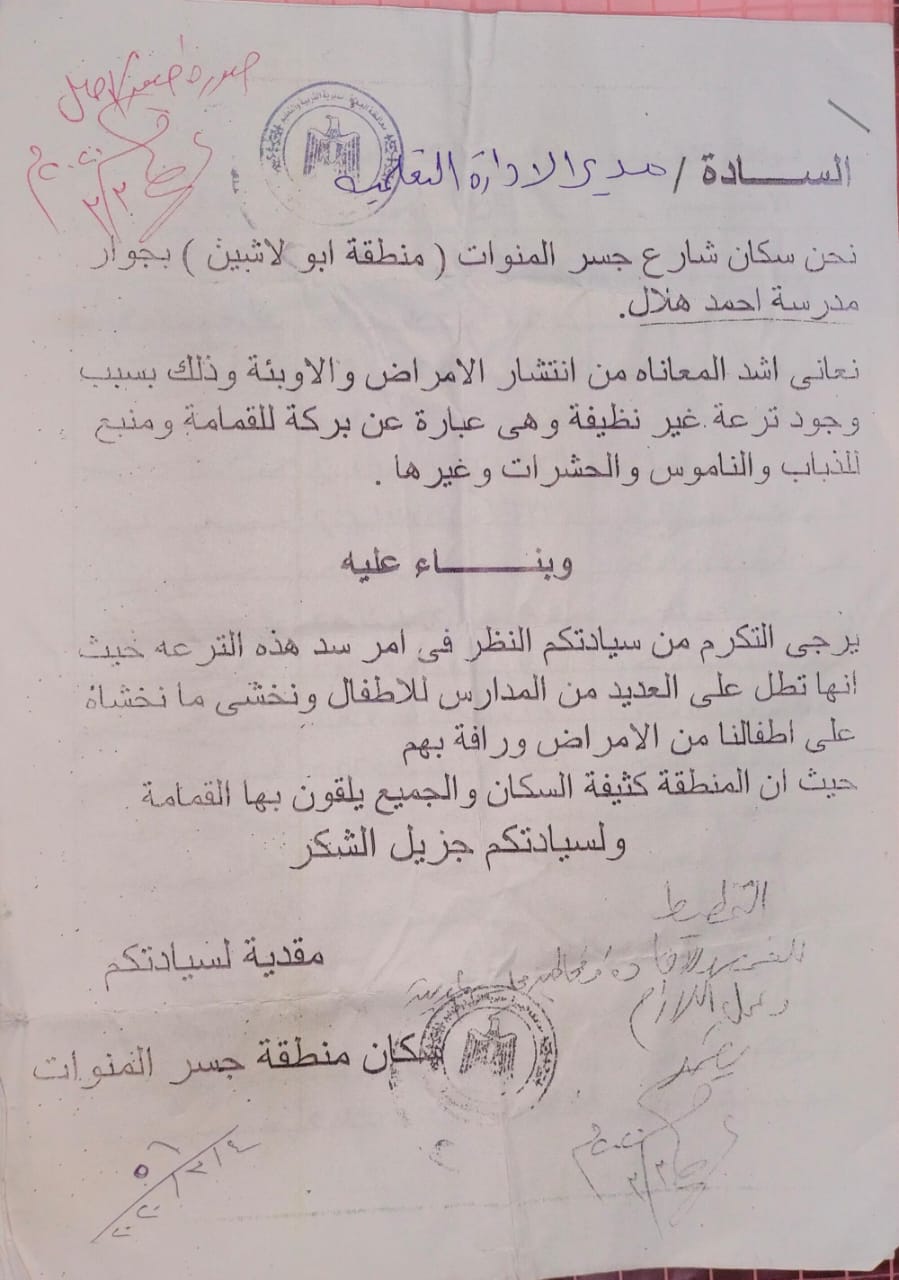 صورة
السادة / مدير الادارة التعليمية
نحن سكان شارع جسر المنوات ( منطقة ابو لاشين ) بجوار
مدرسة احمد هلال.
نعانى اشد المعاناه من انتشار الامراض والاوبئة وذلك بسبب
وجود ترعة غير نظيفة وهى عبارة عن بركة للقمامة ومنبع
للذباب والناموس والحشرات وغيرها .
وبناء عليه
يرجى التكرم من سيادتكم النظر فى امر سد هذه الترعه حيث
انها تطل على العديد من المدارس للاطفال ونخشى ما نخشاة
على اطفالنا من الامراض ورافة بهم
حيث ان المنطقة كثيفة السكان والجميع يلقون بها القمامة
ولسيادتكم جزيل الشكر
التخطيط
وعمل اللازم
مقدية لسيادتكم
سكان منطقة جسر المنوات